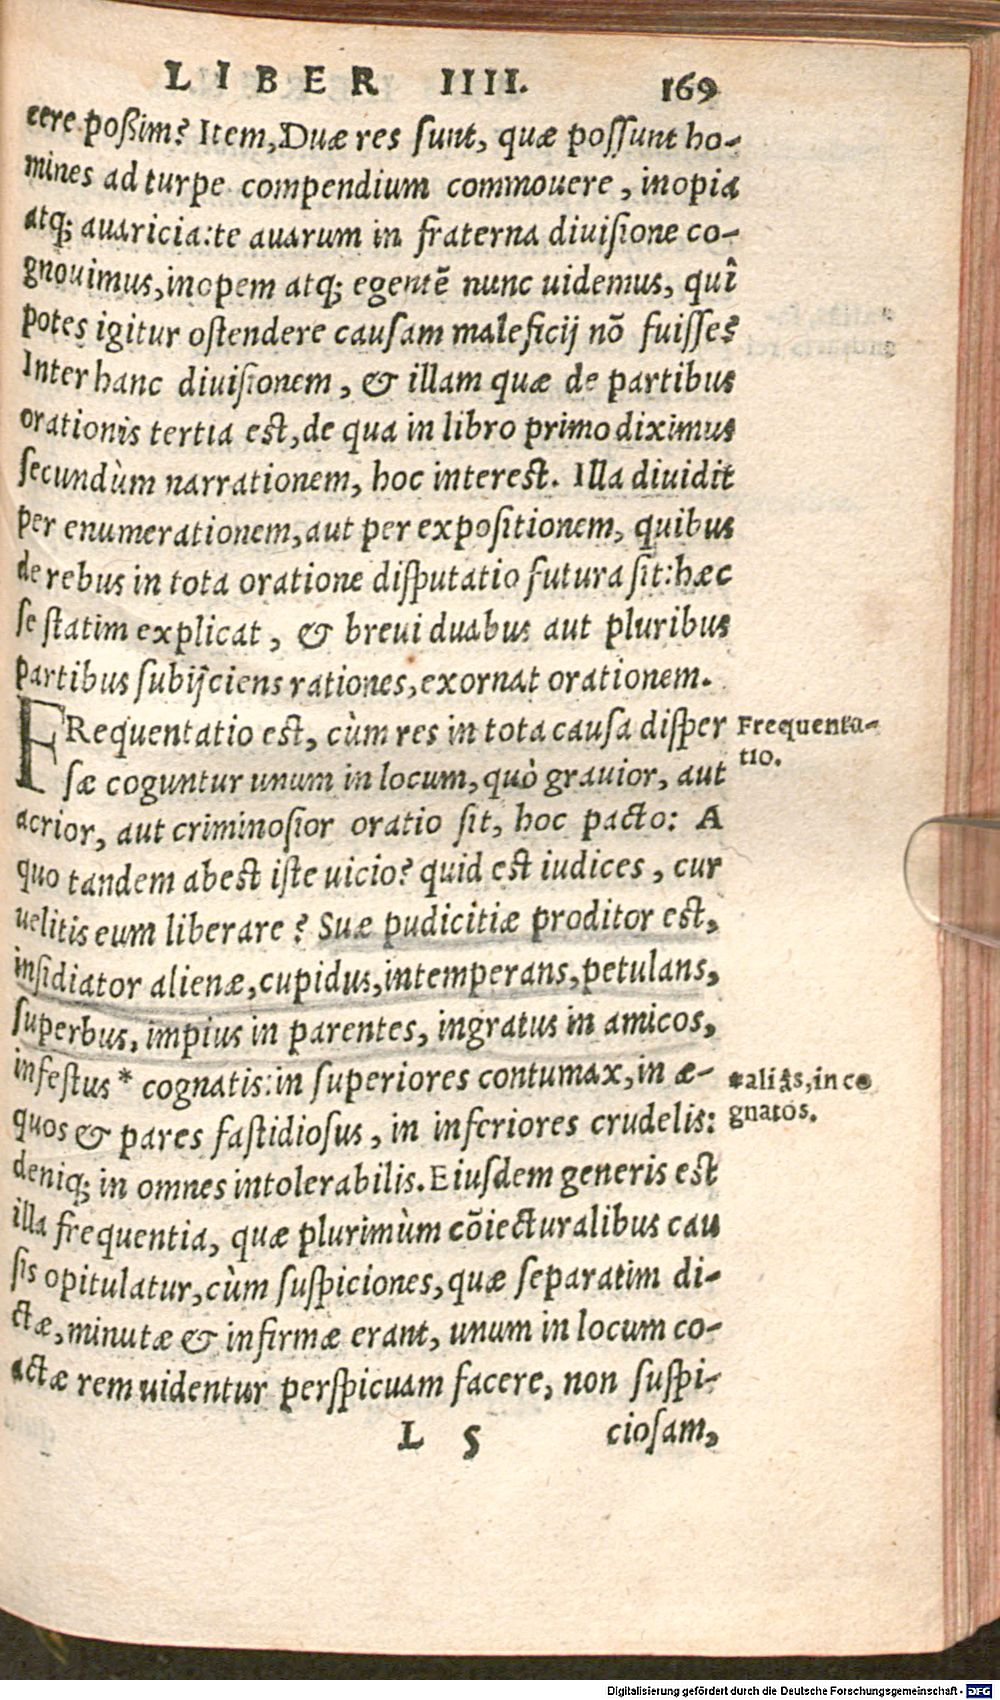 LIBER IIII. 169
cere poßim? Item, Duæ res ſunt, quæ poſſunt ho-
mines ad turpe compendium commouere, inopia
atq; auaricia: te auarum in fraterna diuiſione co-
gnouimus, inopem atq; egentē nunc uidemus, quî
potes igitur oſtendere cauſam maleficij nō fuiſſe?
Inter hanc diuiſionem, & illam quæ de partibus
orationis tertia est, de qua in libro primo diximus
ſecundùm narrationem, hoc interest. Illa diuidit
per enumerationem, aut per expoſitionem, quibus
de rebus in tota oratione diſputatio futura ſit: hæc
ſe ſtatim explicat, & breui duabus aut pluribus
partibus ſubijciens rationes, exornat orationem.
FRequentatio est, cùm res in tota cauſa diſper
ſæ coguntur unum in locum, quò grauior, aut
acrior, aut criminoſior oratio ſit, hoc pacto: A
quo tandem abest iſte uicio? quid est iudices, cur
uelitis eum liberare? Suæ pudicitiæ proditor est,
inſidiator alienæ, cupidus, intemperans, petulans,
ſuperbus, impius in parentes, ingratus in amicos,
infeſtus * cognatis: in ſuperiores contumax, in æ-
quos & pares faſtidioſus, in inferiores crudelis:
deniq; in omnes intolerabilis. Eiuſdem generis est
illa frequentia, quæ plurimùm cōiecturalibus cau
ſis opitulatur, cùm ſuſpiciones, quæ ſeparatim di-
ctæ, minutæ & infirmæ erant, unum in locum co-
actæ rem uidentur perſpicuam facere, non ſuſpi-
L 5 cioſam,
Frequenta-
tio.
*aliâs, in co
gnatos.
Digitalisierung gefördert durch die Deutsche Forschungsgemeinschaft - DFG